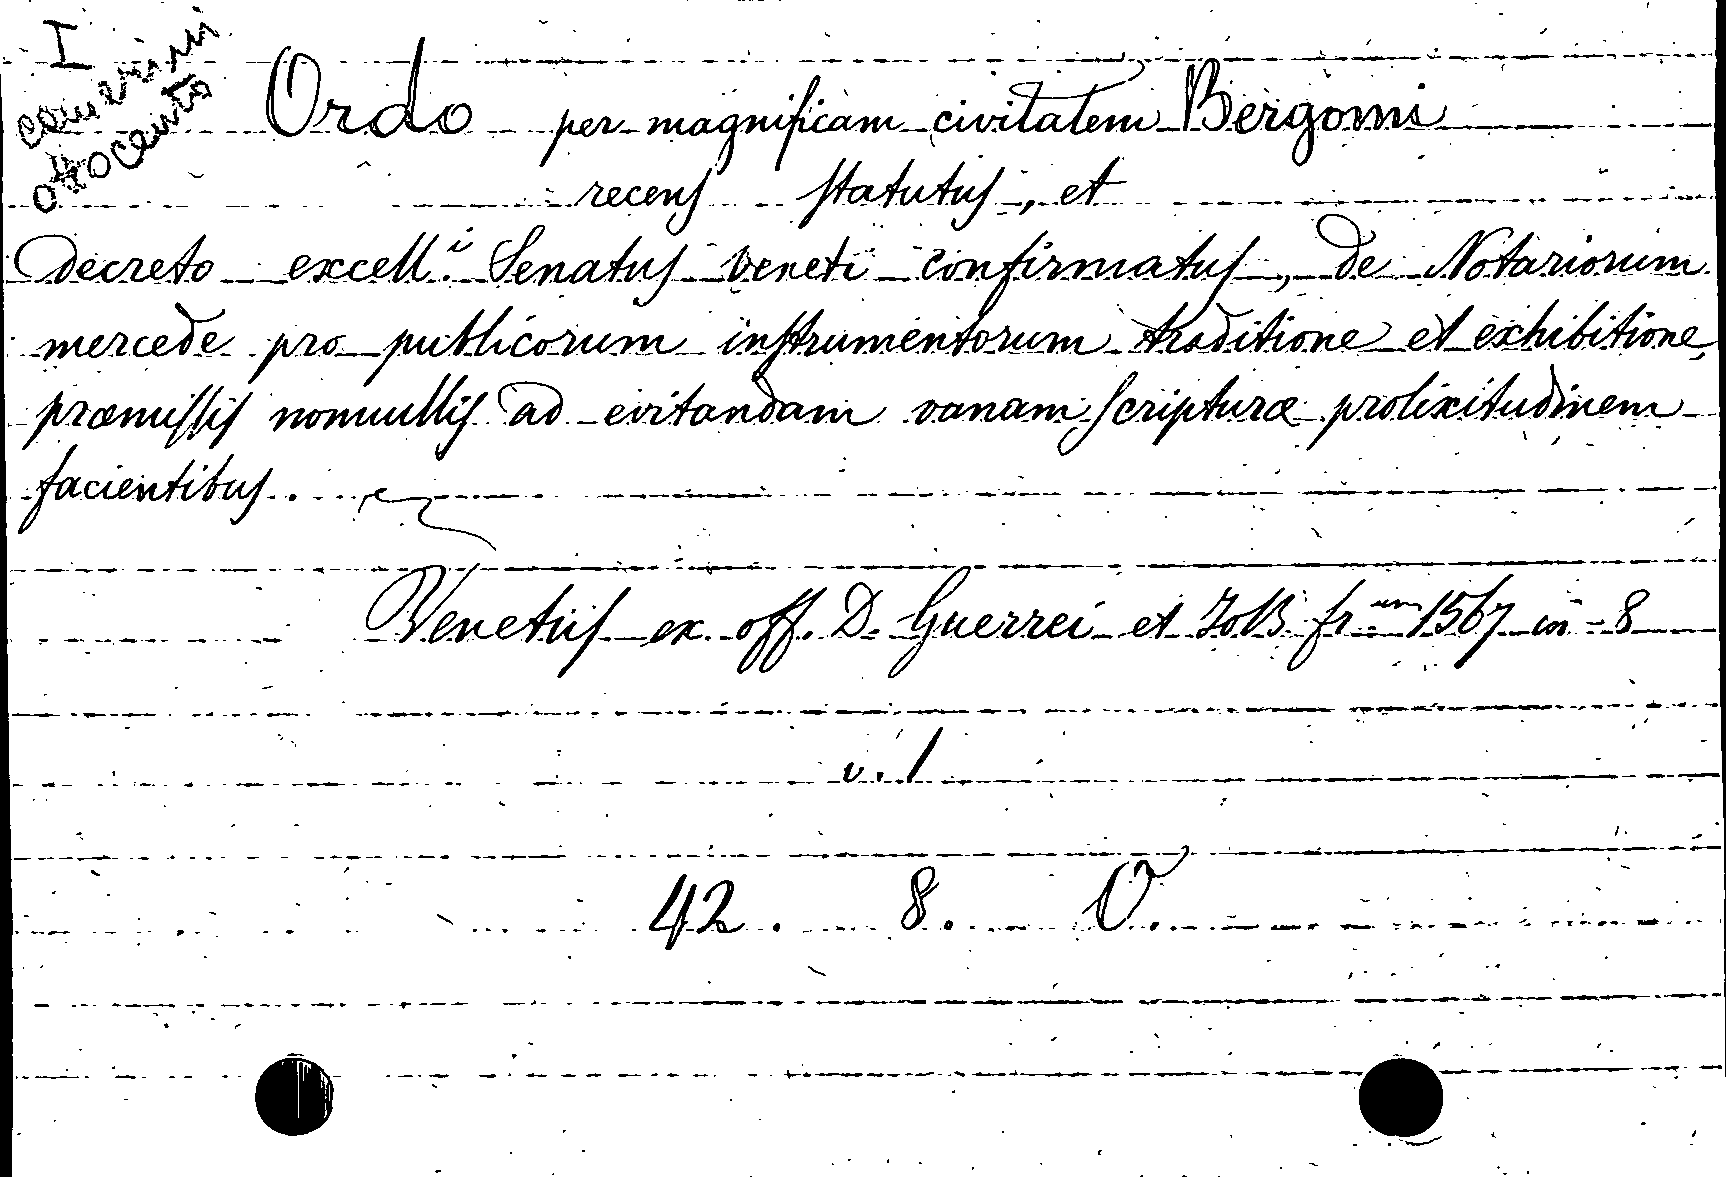 I
Ordo per magnificam civitatem Bergomi
recens statutus, et
decreto excell.i Senatus veneti confirmatus, de Notariorum
mercede pro publicorum instrumentorum traditione et exhibitione,
præmissis nonnullis ad evitandam vanam scripturæ prolixitudinem
facientibus.
Venetiis ex off. D. Guerrei et Jo B. fr.um 1567 in-8
v. 1
42. 8. O.